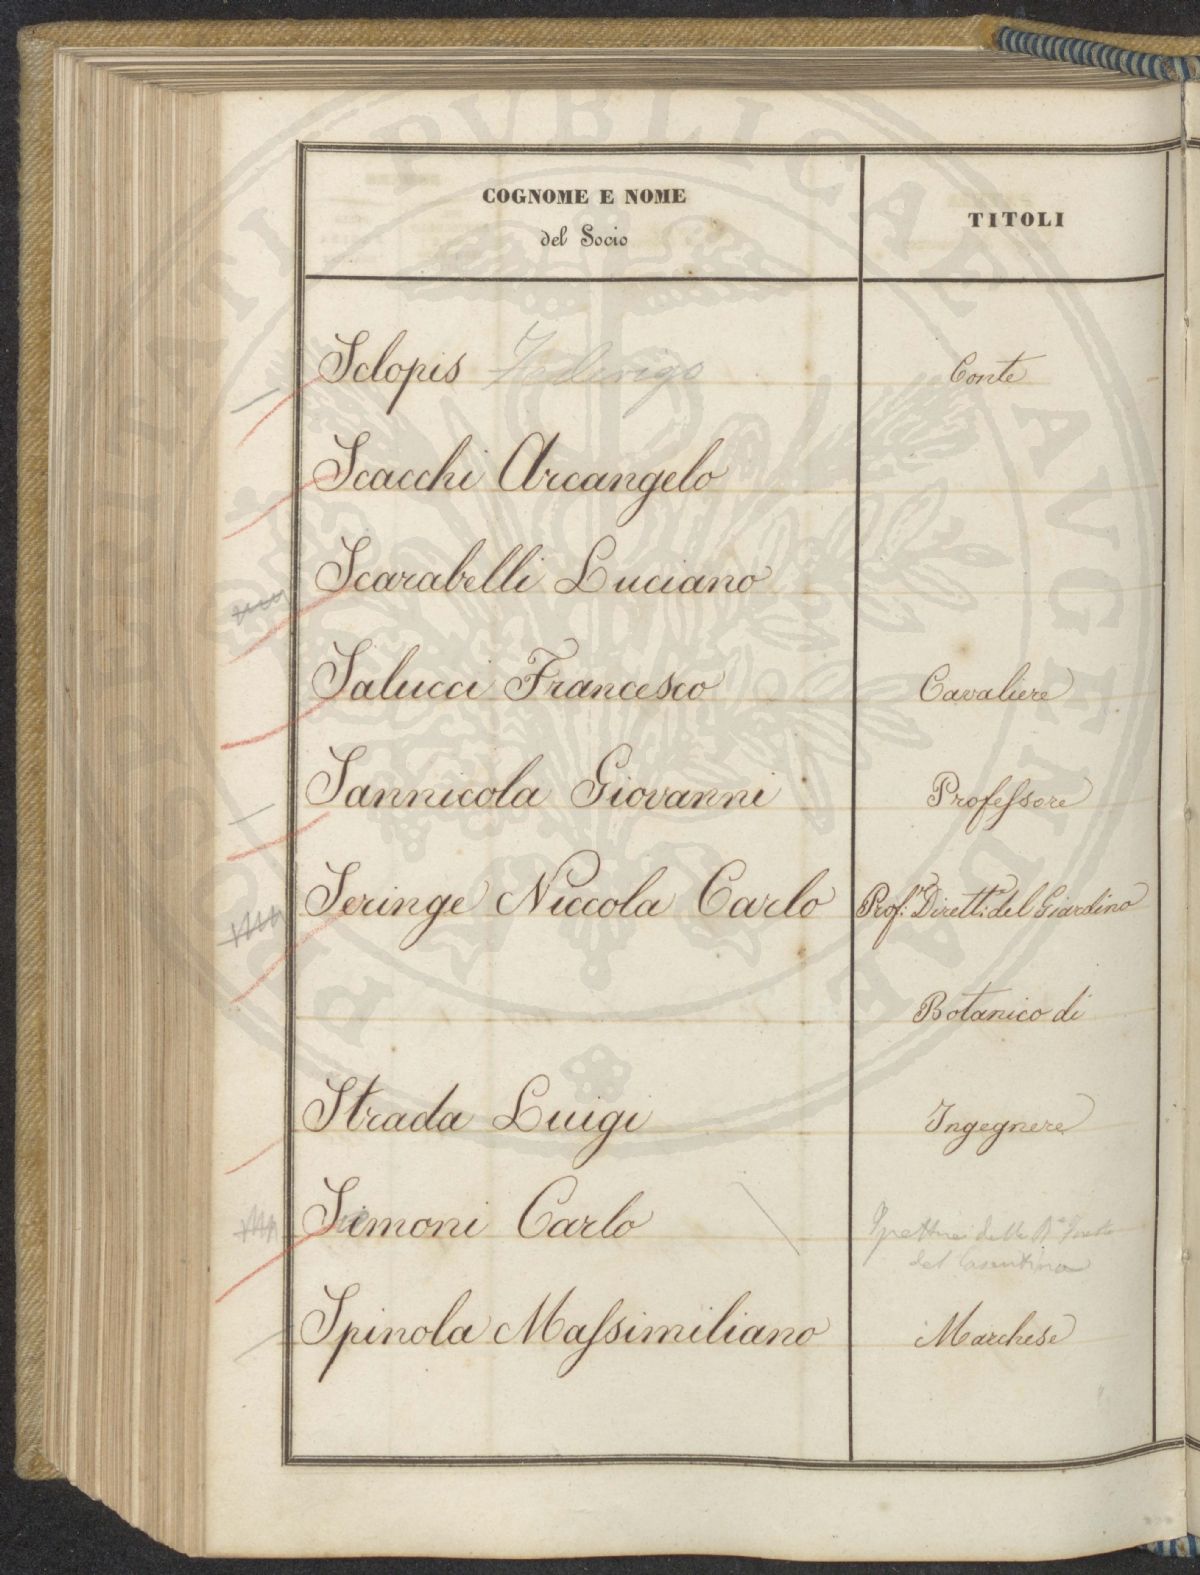 COGNOME E NOME
del Socio
TITOLI
Sclopis Federigo
Conte
Scacchi Arcangelo
Scarabelli Luciano
Salucci Francesco
Cavaliere
Sannicola Giovanni
Professore
Seringe Niccola Carlo
Prof.re Dirett: del Giardino
Botanico di
Strada Luigi
Ingegnere
Siemoni Carlo
delle
del Casentino
Spinola Massimiliano
Marchese
PROSPERITATI PVBLICAE AVGENDAE